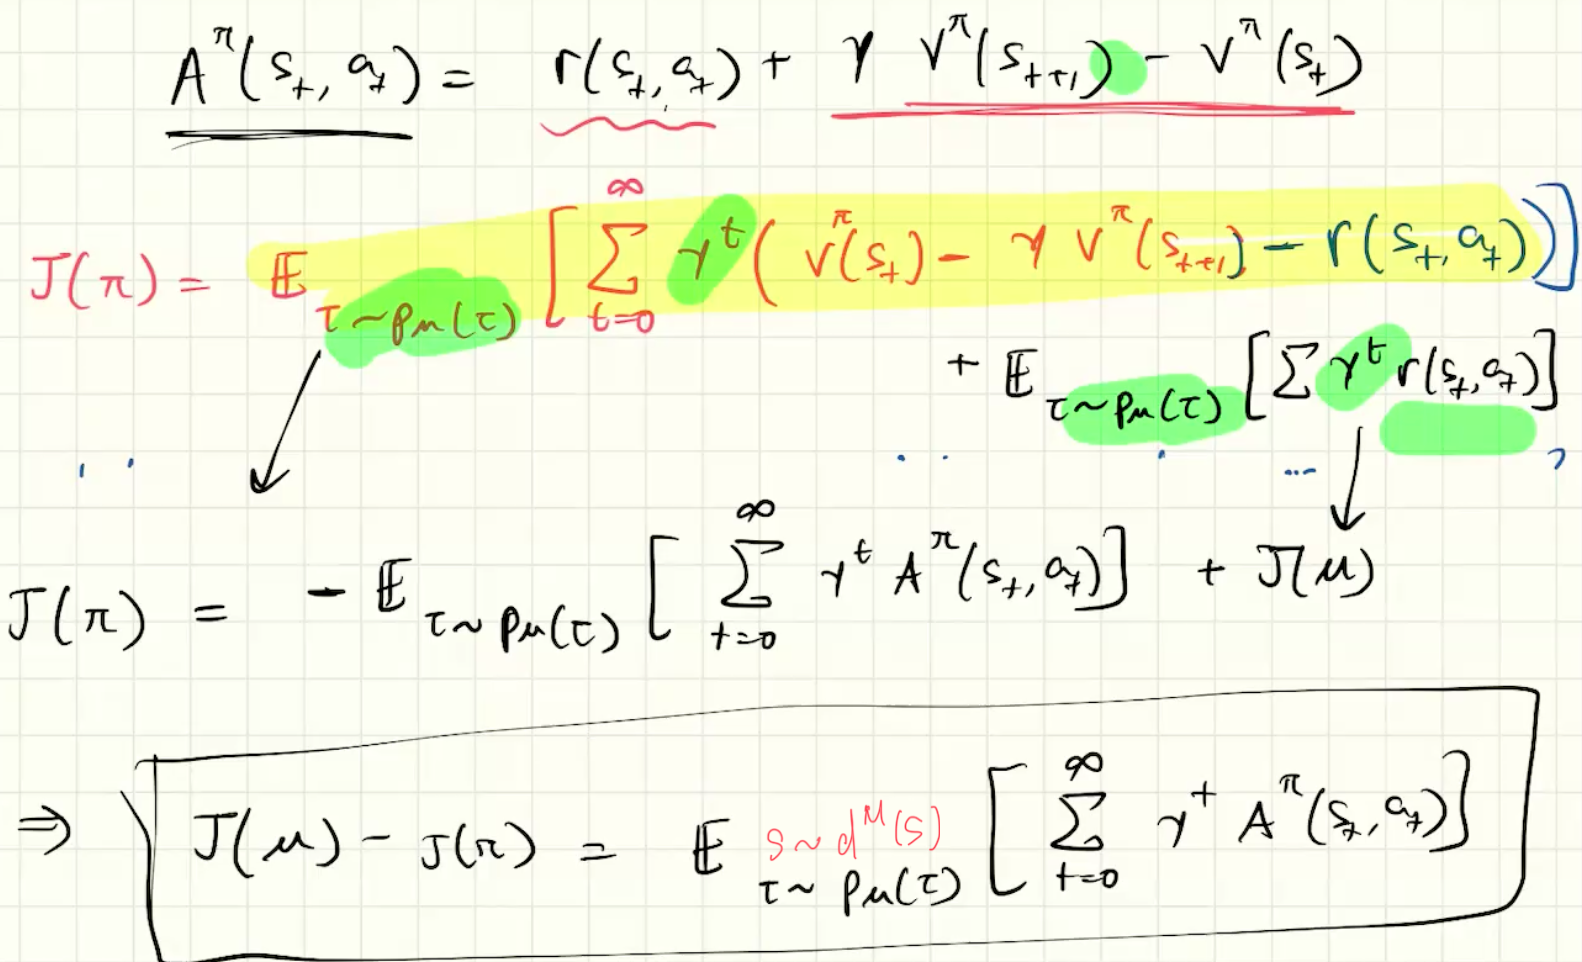 A^π(s_t, a_t) = r(s_t, a_t) + γ V^π(s_{t+1}) - V^π(s_t)
J(π) = 𝔼_{τ~p_μ(τ)} [ ∑_{t=0}^{∞} γ^t ( V^π(s_t) - γ V^π(s_{t+1}) - r(s_t, a_t) ) ]
+ 𝔼_{τ~p_μ(τ)} [ ∑ γ^t r(s_t, a_t) ]
J(π) = - 𝔼_{τ~p_μ(τ)} [ ∑_{t=0}^{∞} γ^t A^π(s_t, a_t) ] + J(μ)
⇒ J(μ) - J(π) = 𝔼_{s~d^μ(s) τ~p_μ(τ)} [ ∑_{t=0}^{∞} γ^t A^π(s_t, a_t) ]